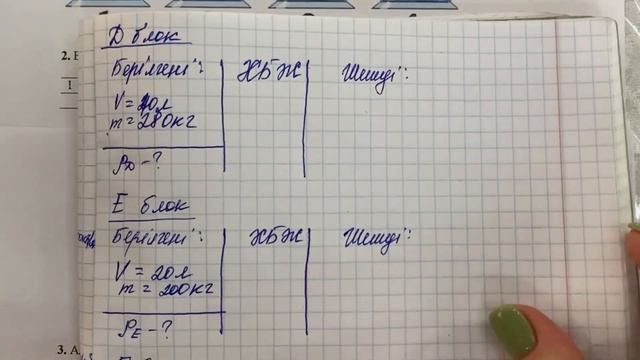 Д блок
Берілгені:
ХБЖ
Шешуі:
V = 20л
m = 280кг
ρD - ?
Е блок
Берілгені:
ХБЖ
Шешуі:
V = 20л
m = 200кг
ρE - ?
2.
1
3. А